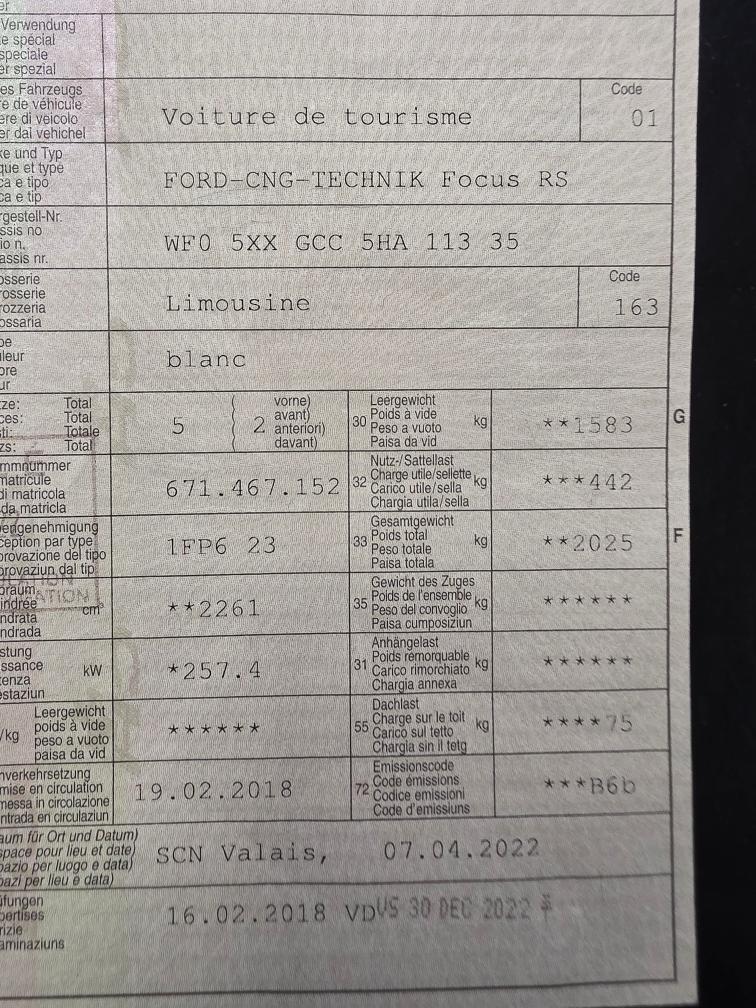 er
Verwendung
e spécial
speciale
er spezial
es Fahrzeugs
re de véhicule
ere di veicolo
er dal vehichel
Voiture de tourisme
Code
01
ke und Typ
que et type
ca e tipo
ca e tip
FORD-CNG-TECHNIK Focus RS
rgestell-Nr.
ssis no
io n.
assis nr.
WF0 5XX GCC 5HA 113 35
osserie
rosserie
rozzeria
ossaria
Limousine
Code
163
be
uleur
ore
ur
blanc
ze: Total
ces: Total
sti: Totale
zs: Total
5 ( 2 vorne)
avant)
anteriori)
davant)
30 Leergewicht
Poids à vide
Peso a vuoto
Paisa da vid
kg
**1583
G
mmnummer
matricule
di matricola
da matricla
671.467.152
32 Nutz-/Sattellast
Charge utile/sellette
Carico utile/sella
Chargia utila/sella
kg
***442
pengenehmigung
ception par type
provazione del tipo
provaziun dal tip
1FP6 23
33 Gesamtgewicht
Poids total
Peso totale
Paisa totala
kg
**2025
F
braum
indrée
ndrata
ndrada
cm³
ATION
**2261
35 Gewicht des Zuges
Poids de l'ensemble
Peso del convoglio
Paisa cumposiziun
kg
******
stung
ssance
enza
estaziun
kW
*257.4
31 Anhängelast
Poids remorquable
Carico rimorchiato
Chargia annexa
kg
******
/kg
Leergewicht
poids à vide
peso a vuoto
paisa da vid
******
55 Dachlast
Charge sur le toit
Carico sul tetto
Chargia sin il tetg
kg
****75
nverkehrsetzung
mise en circulation
messa in circolazione
ntrada en circulaziun
19.02.2018
72 Emissionscode
Code émissions
Codice emissioni
Code d'emissiuns
***B6b
aum für Ort und Datum)
space pour lieu et date)
pazio per luogo e data)
pazi per lieu e data)
SCN Valais, 07.04.2022
üfungen
pertises
rizie
aminaziuns
16.02.2018 VD
VS 30 DEC 2022